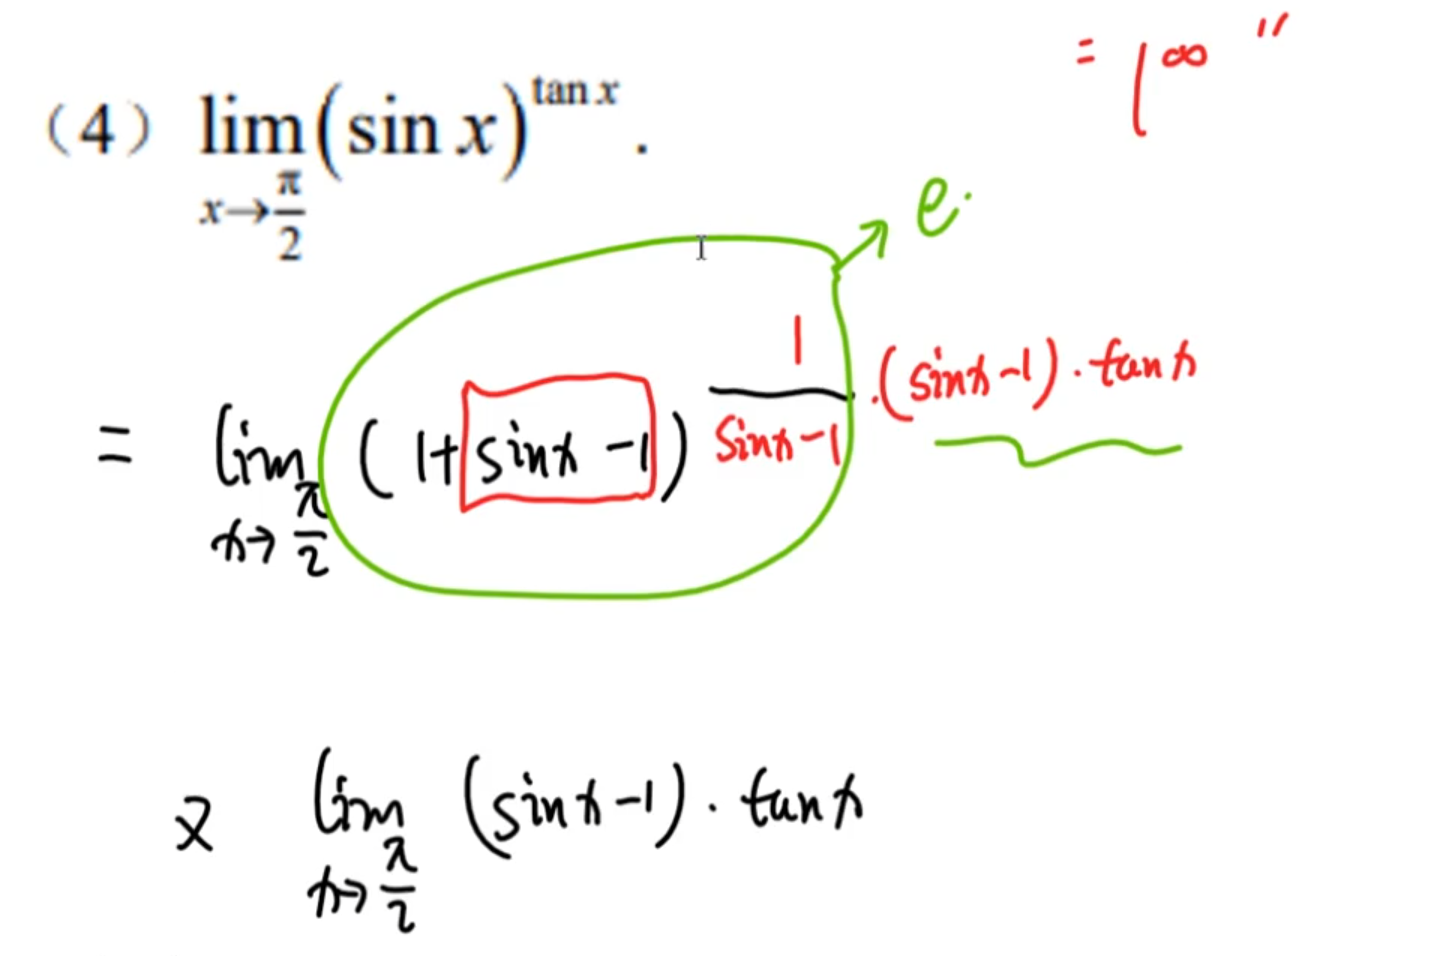 = 1^∞ "
(4) lim_{x→π/2} (sin x)^{tan x} .
e.
= lim_{x→π/2} (1+sinx−1)^{1/(sinx−1) · (sinx−1) · tanx}
又 lim_{x→π/2} (sinx−1) · tanx